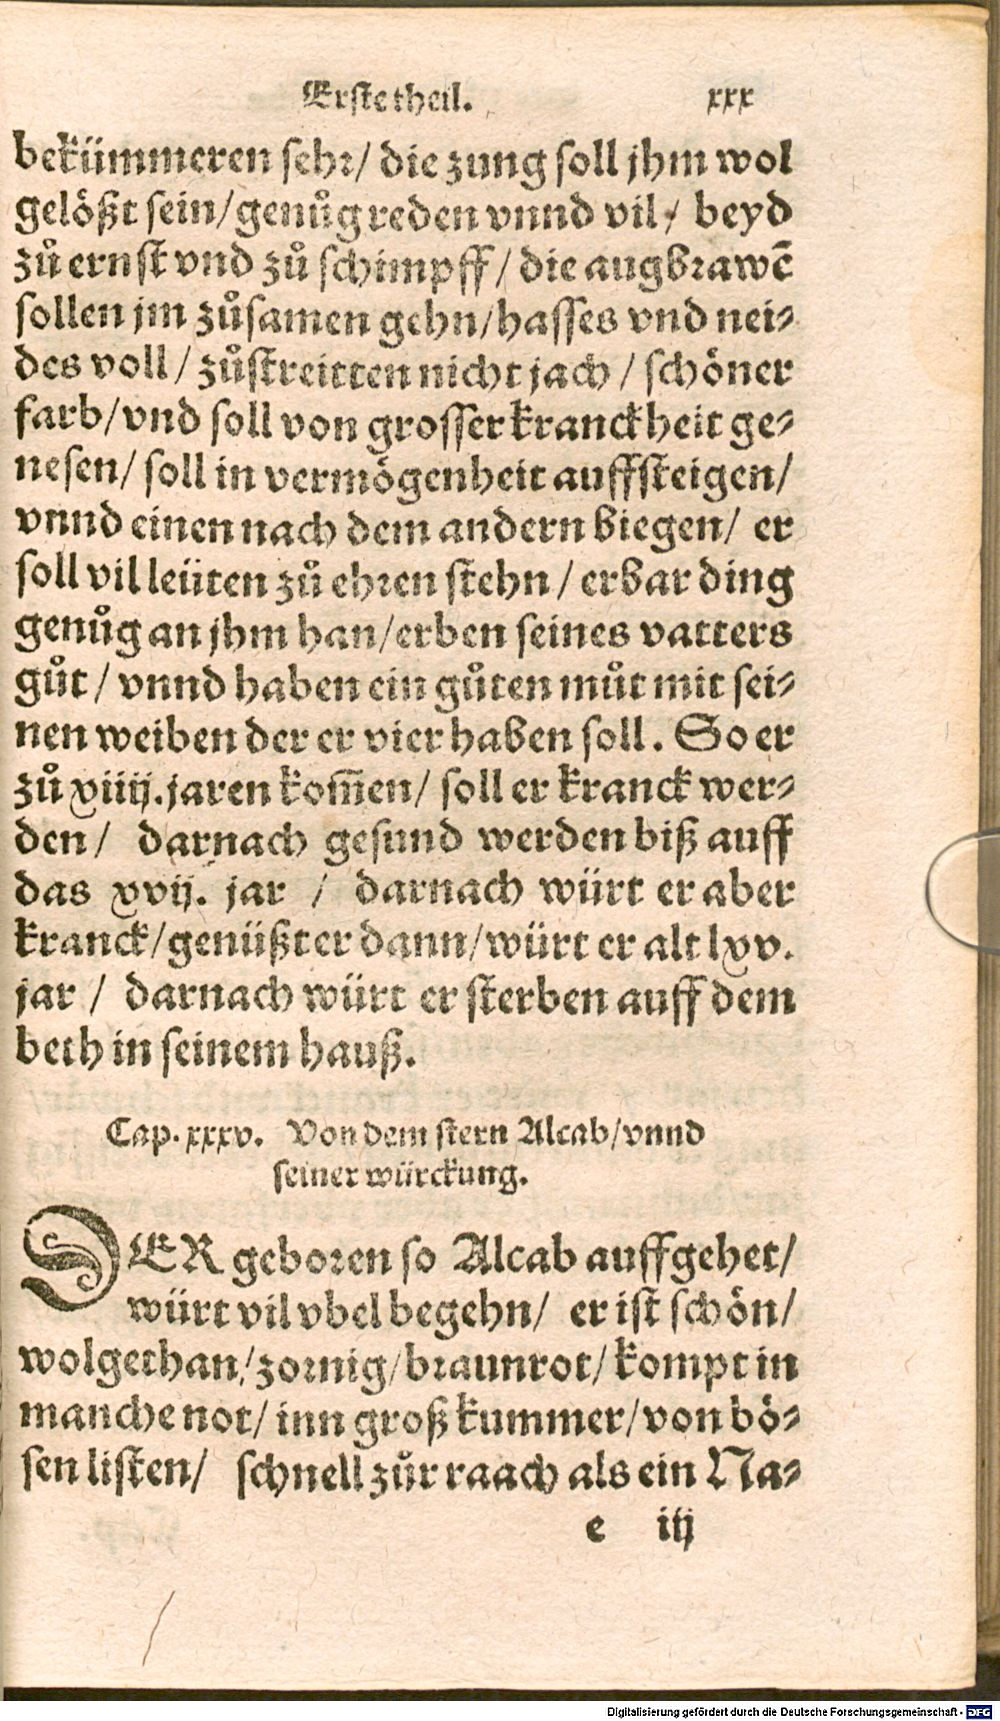 Erste theil. xxx
bekümmeren sehr/ die zung soll jhm wol
gelößt sein/ genůg reden vnnd vil/ beyd
zů ernst vnd zů schimpff/ die augbrawē
sollen jm zůsamen gehn/ hasses vnd nei⸗
des voll/ zůstreitten nicht jach/ schöner
farb/ vnd soll von grosser kranckheit ge⸗
nesen/ soll in vermögenheit auffsteigen/
vnnd einen nach dem andern biegen/ er
soll vil leüten zů ehren stehn/ erbar ding
genůg an jhm han/ erben seines vatters
gůt/ vnnd haben ein gůten můt mit sei⸗
nen weiben der er vier haben soll. So er
zů xiiij. jaren kom̅en/ soll er kranck wer⸗
den/ darnach gesund werden biß auff
das xvij. jar / darnach würt er aber
kranck/ genüßt er dann/ würt er alt lxv.
jar / darnach würt er sterben auff dem
beth in seinem hauß.
Cap. xxxv. Von dem stern Alcab/ vnnd
seiner würckung.
DER geboren so Alcab auffgehet/
würt vil vbel begehn/ er ist schön/
wolgethan/ zornig/ braunrot/ kompt in
manche not/ inn groß kummer/ von bö⸗
sen listen/ schnell zůr raach als ein Na⸗
e iij
Digitalisierung gefördert durch die Deutsche Forschungsgemeinschaft - DFG